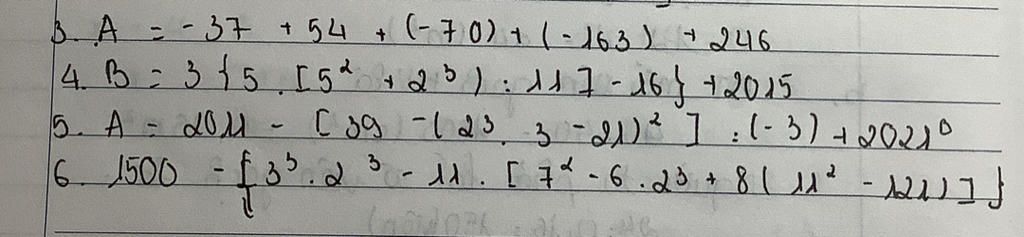 3. A = - 37 + 54 + (-70) + (-163) + 246
4. B = 3 { 5 . [ 5² + 2³ ) : 11 ] - 16 } + 2015
5. A = 2011 - [ 39 - ( 2³ . 3 - 21 )² ] : (-3) + 2021⁰
6. 1500 - { 3³ . 2³ - 11 . [ 7² - 6 . 2³ + 8 ( 11² - 121 ) ] }